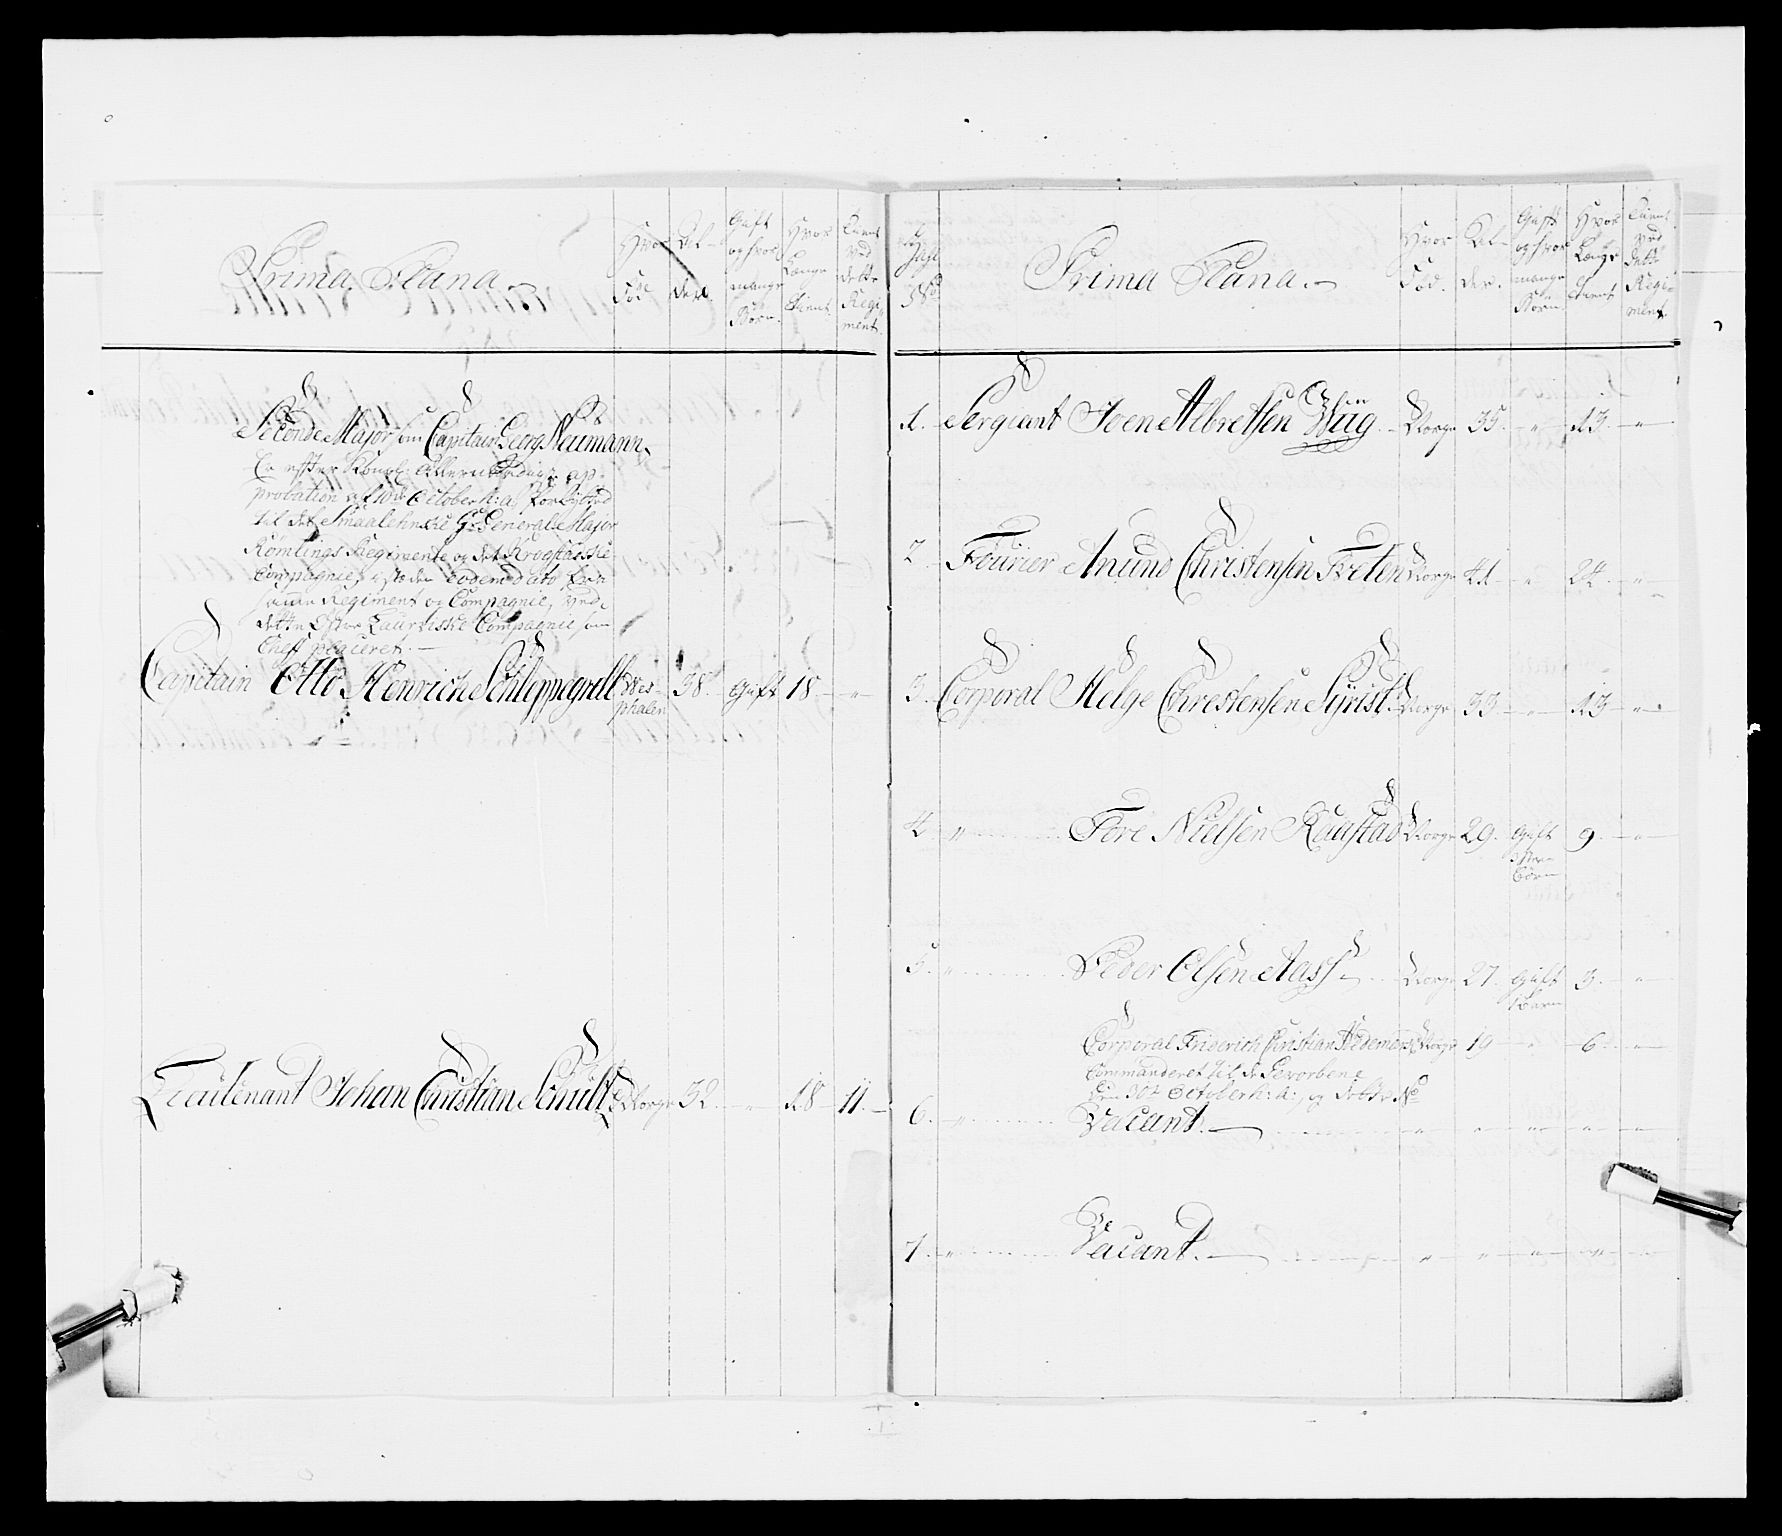 Prima Plana.
Hvor
Fød.
Al-
der.
Gift
og hvor
mange
Børn.
Hvor
Længe
Tient.
Tient
ved
dette
Regi-
ment.
Seconde Major som Capitain Georg Neumann
Er efter Kongl: Allernaadigste ap-
probation af 10de October h: a: forbÿtted
til det Smaalehnske Gr: General Major
Rømlings Regimente og det Krogstadske
Compagnie, i steden eodem dato fra
samme Regiment og Compagnie, ved
dette Øster Laurvigske Compagnie som
Chef placeret.
Capitain Otto Henrich Schleppegrell Wes- 38. gift 18 - "
phalen
Lieutenant Johan Christian Schultz Norge 32. - " - 18 - 11.
No
Prima Plana.
Hvor
Fød.
Al-
der.
Gift
og hvor
mange
Børn.
Hvor
Længe
Tient
Tient
ved
dette
Regi-
ment.
1. Sergeant Joen Albretsen Norge 35. - " - 13. - "
2. Fourier Anund Christensen Tveten Norge 41 - " - 24. - "
3. Corporal Helge Christensen Norge 33 - " - 13 - "
4. " Tore Nielsen Norge 29. gift 9. - "
Børn
5. " Peder Olsen Aass Norge 27. gift 3. - "
1 Barn
Corporal Friderich Christian Hedemark Norge 19 - " - 6. - "
Commanderet til de Gevorbene
den 30te October h: a:, og dobt No
6. " Vacant. " " " " "
7. " Vacant. " " " " "